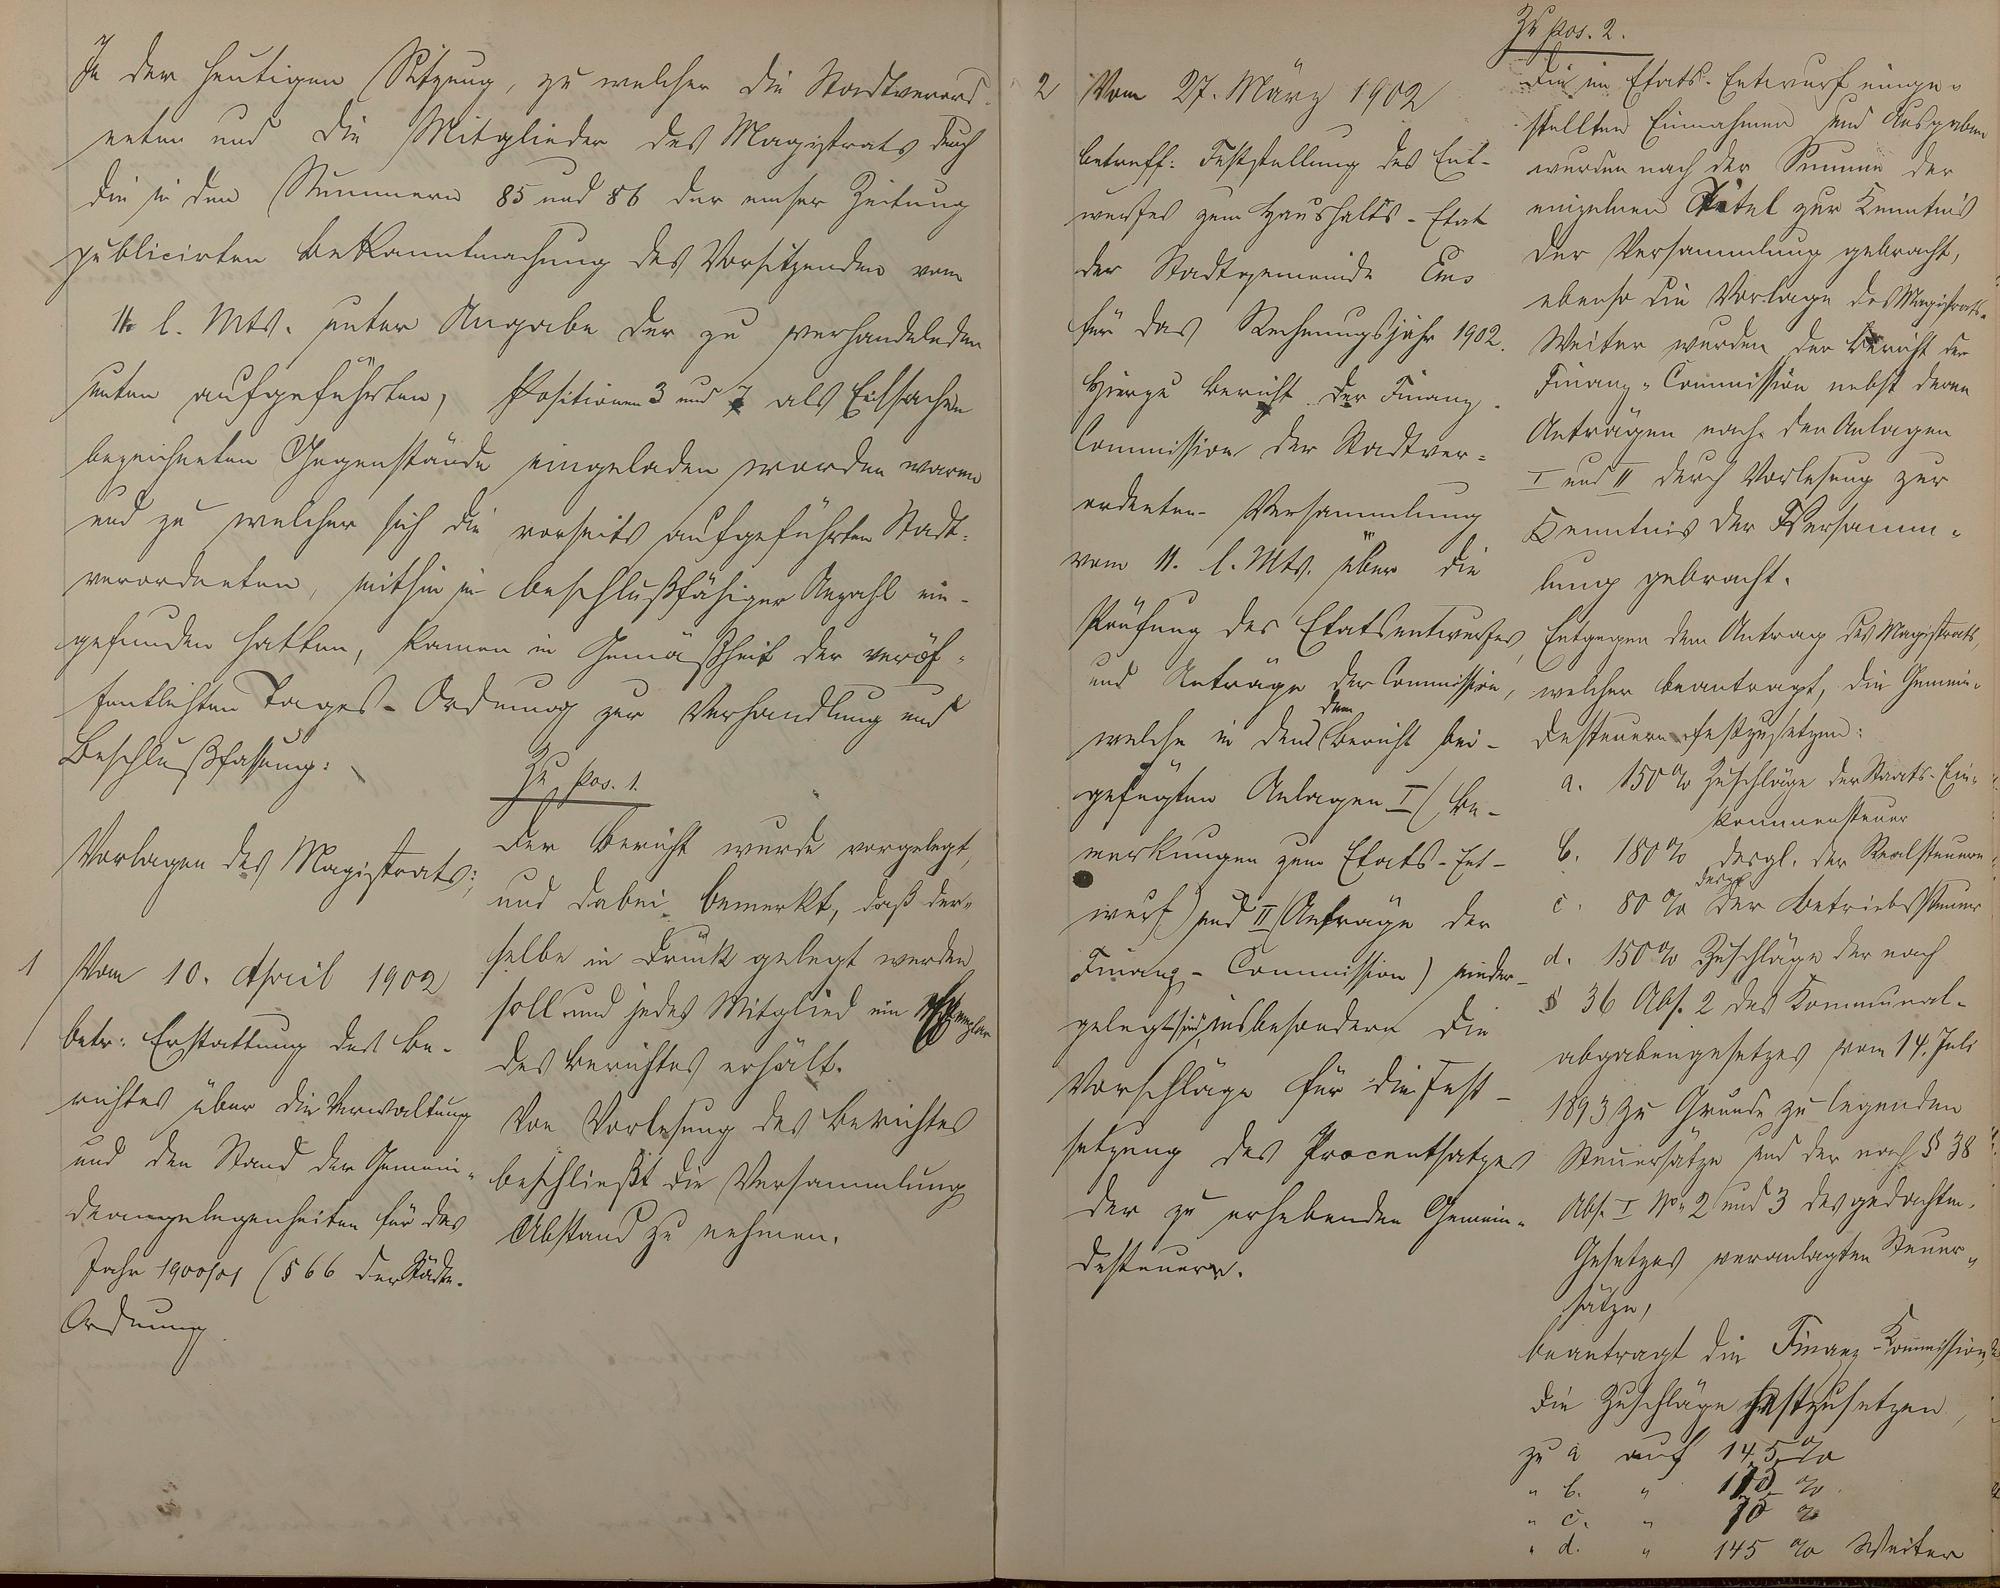 In der heutigen Sitzung, zu welcher die Stadtverord-
neten und die Mitglieder des Magistrats durch
die in den Nummern 85 und 86 der emser Zeitung
publicirten Bekanntmachung des Vorsitzenden vom
11. l. Mts. unter Angabe der zu verhandelnden
unten aufgeführten, Positionen 3 und 7 als Eilsachen
bezeichneten Gegenstände eingeladen worden waren
und zu welcher sich die vorseits aufgeführten Stadt-
verordneten, mithin in beschlußfähiger Anzahl ein-
gefunden hatten, kamen in Gemäßheit der veröf-
fentlichten Tages-Ordnung zur Verhandlung und
Beschlußfassung:
Vorlagen des Magistrats:
1 Vom 10. April 1902
betr: Erstattung des Be-
richtes über die Verwaltung
und den Stand der Gemein-
deangelegenheiten für das
Jahr 1900/01 (§ 66 der Städte-
Ordnung
Zu pos. 1.
Der Bericht wurde vorgelegt,
und dabei bemerkt, daß der-
selbe in Druck gelegt werden
soll und jedes Mitglied ein Exemplar
des Berichtes erhält.
Von Vorlesung des Berichtes
beschließt die Versammlung
Abstand zu nehmen.
2 Vom 27. März 1902
betreff: Feststellung des Ent-
wurfes zum Haushalts-Etat
der Stadtgemeinde Ems
für das Rechnungsjahr 1902.
Hierzu Bericht der Finanz-
Commission der Stadtver-
ordneten-Versammlung
vom 11. l. Mts. über die
Prüfung des Etatsentwurfes,
und Anträge der Commission,
welche in dem Bericht bei-
gefügten Anlagen I (Be-
merkungen zum Etats-Ent-
wurf) und II (Anträge der
Finanz-Commission) nieder-
gelegt sind, insbesondere die
Vorschläge für die Fest-
setzung des Procentsatzes
der zu erhebenden Gemein-
desteuern.
Zu pos. 2.
Die im Etats-Entwurf einge-
stellten Einnahmen und Ausgaben
wurden nach der Summe der
einzelnen Titel zur Kenntnis
der Versammlung gebracht,
ebenso die Vorlage des Magistrats.
Weiter wurden der Bericht der
Finanz-Commission nebst deren
Anträgen nach den Anlagen
I und II durch Vorlesung zur
Kenntnis der Versamm-
lung gebracht.
Entgegen dem Antrag des Magistrats,
welcher beantragt, die Gemein-
desteuern festzusetzen:
a. 150 % Zuschläge der Staats-Ein-
kommensteuer
b. 180 % desgl. der Realsteuern
c. 80 % desgl. der Betriebssteuer
d. 150 % Zuschläge der nach
§ 36 Abs. 2 des Kommunal-
abgabengesetzes vom 14. Juli
1893 zu Grunde zu legenden
Steuersätze und der nach § 38
Abs. I No. 2 und 3 des gedachten
Gesetzes veranlagten Steuer-
sätze,
beantragt die Finanz-Kommission,
die Zuschläge festzusetzen,
zu a auf 145 %
" b. " %
" c. " %
" d. " 145 % Weiter